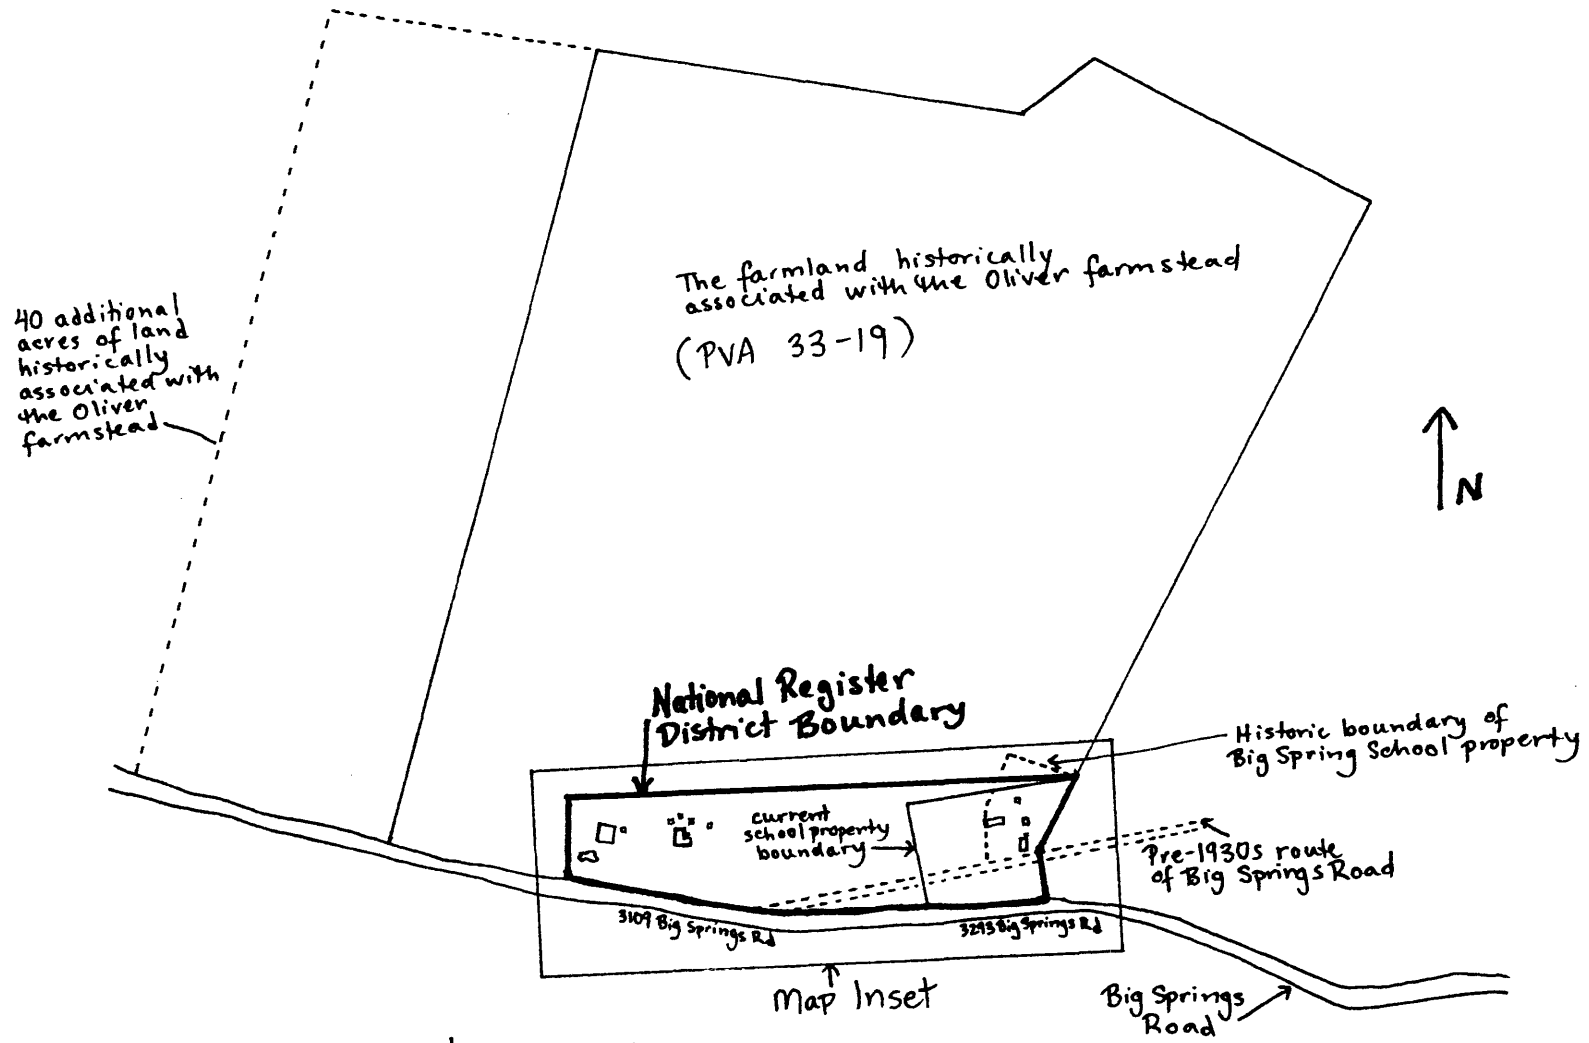 The farmland historically
associated with the Oliver farmstead
(PVA 33-19)
40 additional
acres of land
historically
associated with
the Oliver
farmstead
N
National Register
District Boundary
Historic boundary of
Big Spring School property
current
school property
boundary
Pre-1930s route
of Big Springs Road
3109 Big Springs Rd
3293 Big Springs Rd
Map Inset
Big Springs
Road